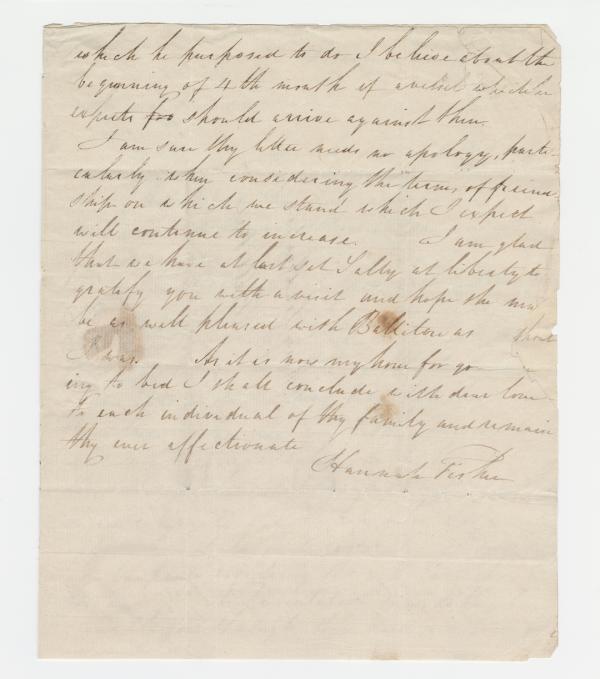 which he purposed to do I believe about the
beginning of 4th month if a vessel which he
expects for should arrive against then.
I am sure thy letter needs no apology, parti-
cularly when considering the terms of friend-
ship on which we stand which I expect
will continue to increase. I am glad
that we have at last set Sally at liberty to
gratify you with a visit and hope she ma
be as well pleased with as
I was. As it is now my hour for go
ing to bed I shall conclude with dear love
to each individual of thy family and remain
thy ever affectionate
Hannah Fisher